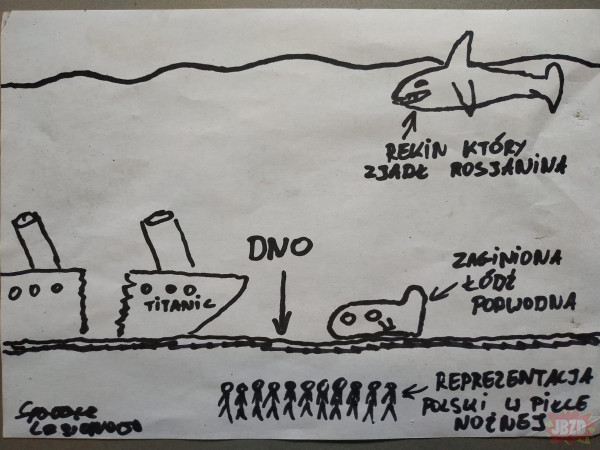 REKIN KTÓRY
ZJADŁ ROSJANINA
DNO
ZAGINIONA
ŁÓDŹ
PODWODNA
TITANIC
REPREZENTACJA
POLSKI W PIŁCE
NOŻNEJ
JBZD